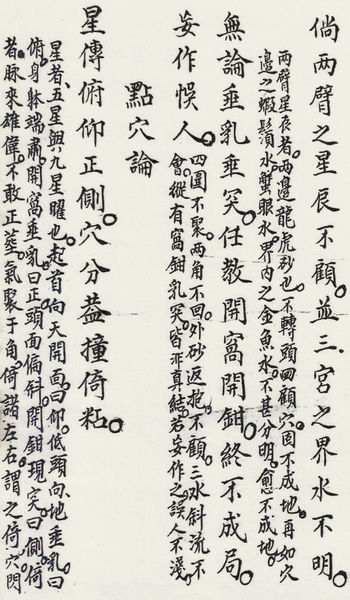 倘两臂之星辰不顧。並三宮之界水不明。
两臂星辰者。两邊龍虎砂也。不轉頭回顧穴。固不成地。再如穴
邊之蝦鬚水。蟹眼水。界內之金魚水。不甚分明。愈不成地。
無論垂乳垂突。任教開窩開鉗。終不成局。
妄作悞人。
四圍不聚。两角不回。外砂返挽。不顧。三水斜流。不
會。縱有窩鉗乳突。皆非真結。若妄作之。誤人不淺。
點穴論
星傳俯仰正側。穴分葢撞倚粘。
星者五星與九星曜也。起首向天開面。曰仰。低頭向地垂乳。曰
俯。身躰端肅。開窩垂乳。曰正。頭面偏斜。開鉗現突。曰側。倚
者。脉來雄偉。不敢正葬。氣聚于角。倚諸左右。謂之倚穴。閃